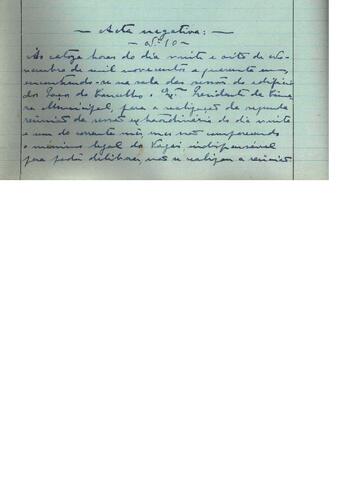 — Acta negativa: —
— Nº 10 —
Ás catorze horas do dia vinte e oito de No-
vembro de mil novecentos e quarenta e um,
encontrando-se na sala das sessões do edificio
dos Paços do Concelho o Exmº Presidente da Câma-
ra Municipal, para a realização da segunda
reünião da sessão extraordinária do dia vinte
e um do corrente mês, mas não comparecendo
o número legal de Vogais, indispensável
para poder deliberar, não se realizou a reünião